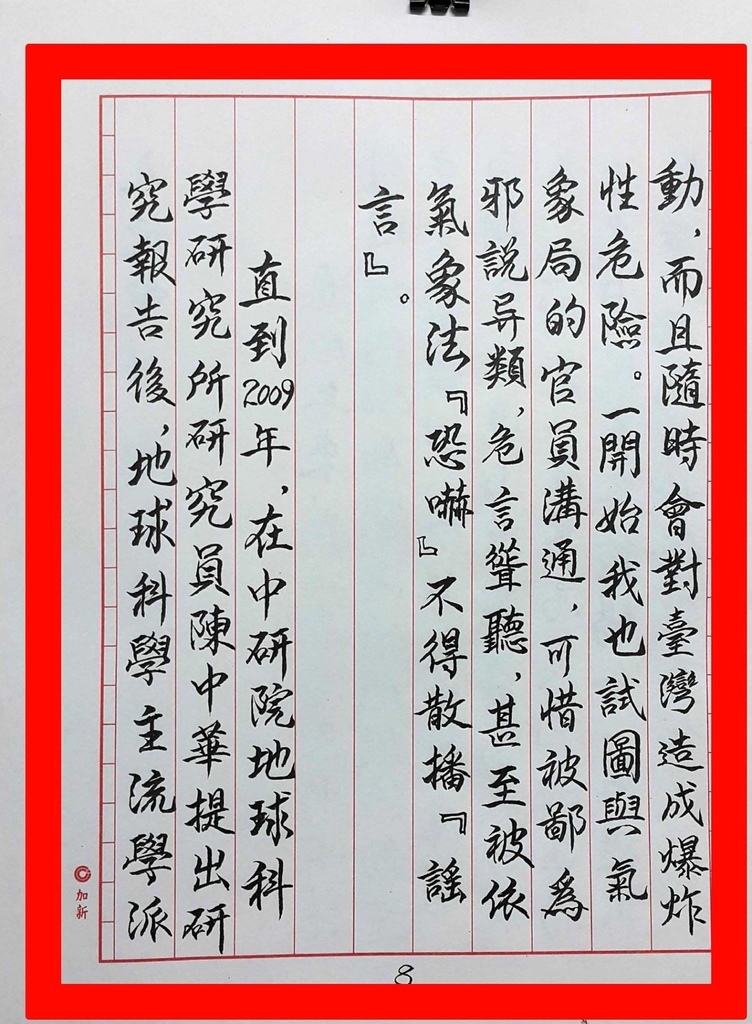 動，而且隨時會對臺灣造成爆炸
性危險。一開始我也試圖與氣
象局的官員溝通，可惜被鄙為
邪說异類，危言聳聽，甚至被依
氣象法『恐嚇』不得散播『謠
言』。
直到2009年，在中研院地球科
學研究所研究員陳中華提出研
究報告後，地球科學主流學派
加新
8